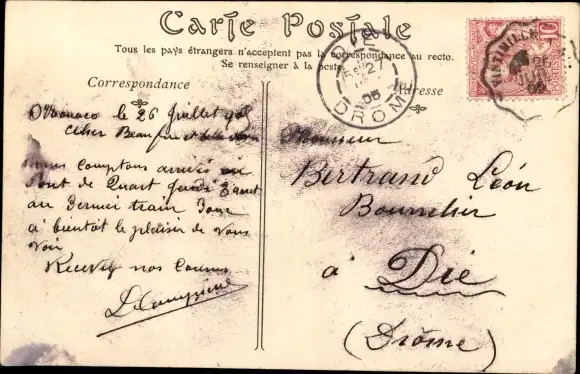 Carte Postale
Tous les pays étrangers n'acceptent pas la correspondance au recto.
Se renseigner à la poste.
Correspondance
Adresse
Monaco le 26 Juillet 905
Cher Beau frère et belle
nous comptons arrivés au
Pont de Quart Jeudi 3 août
au dernier train Donc
à bientôt le plaisir de vous
voir
Recevez nos
Monsieur
Bertrand Léon
Bourrelier
à Die
(Drôme)
DIE
2
05
DROME
VINTIMILLE
26
JUIL
05
10